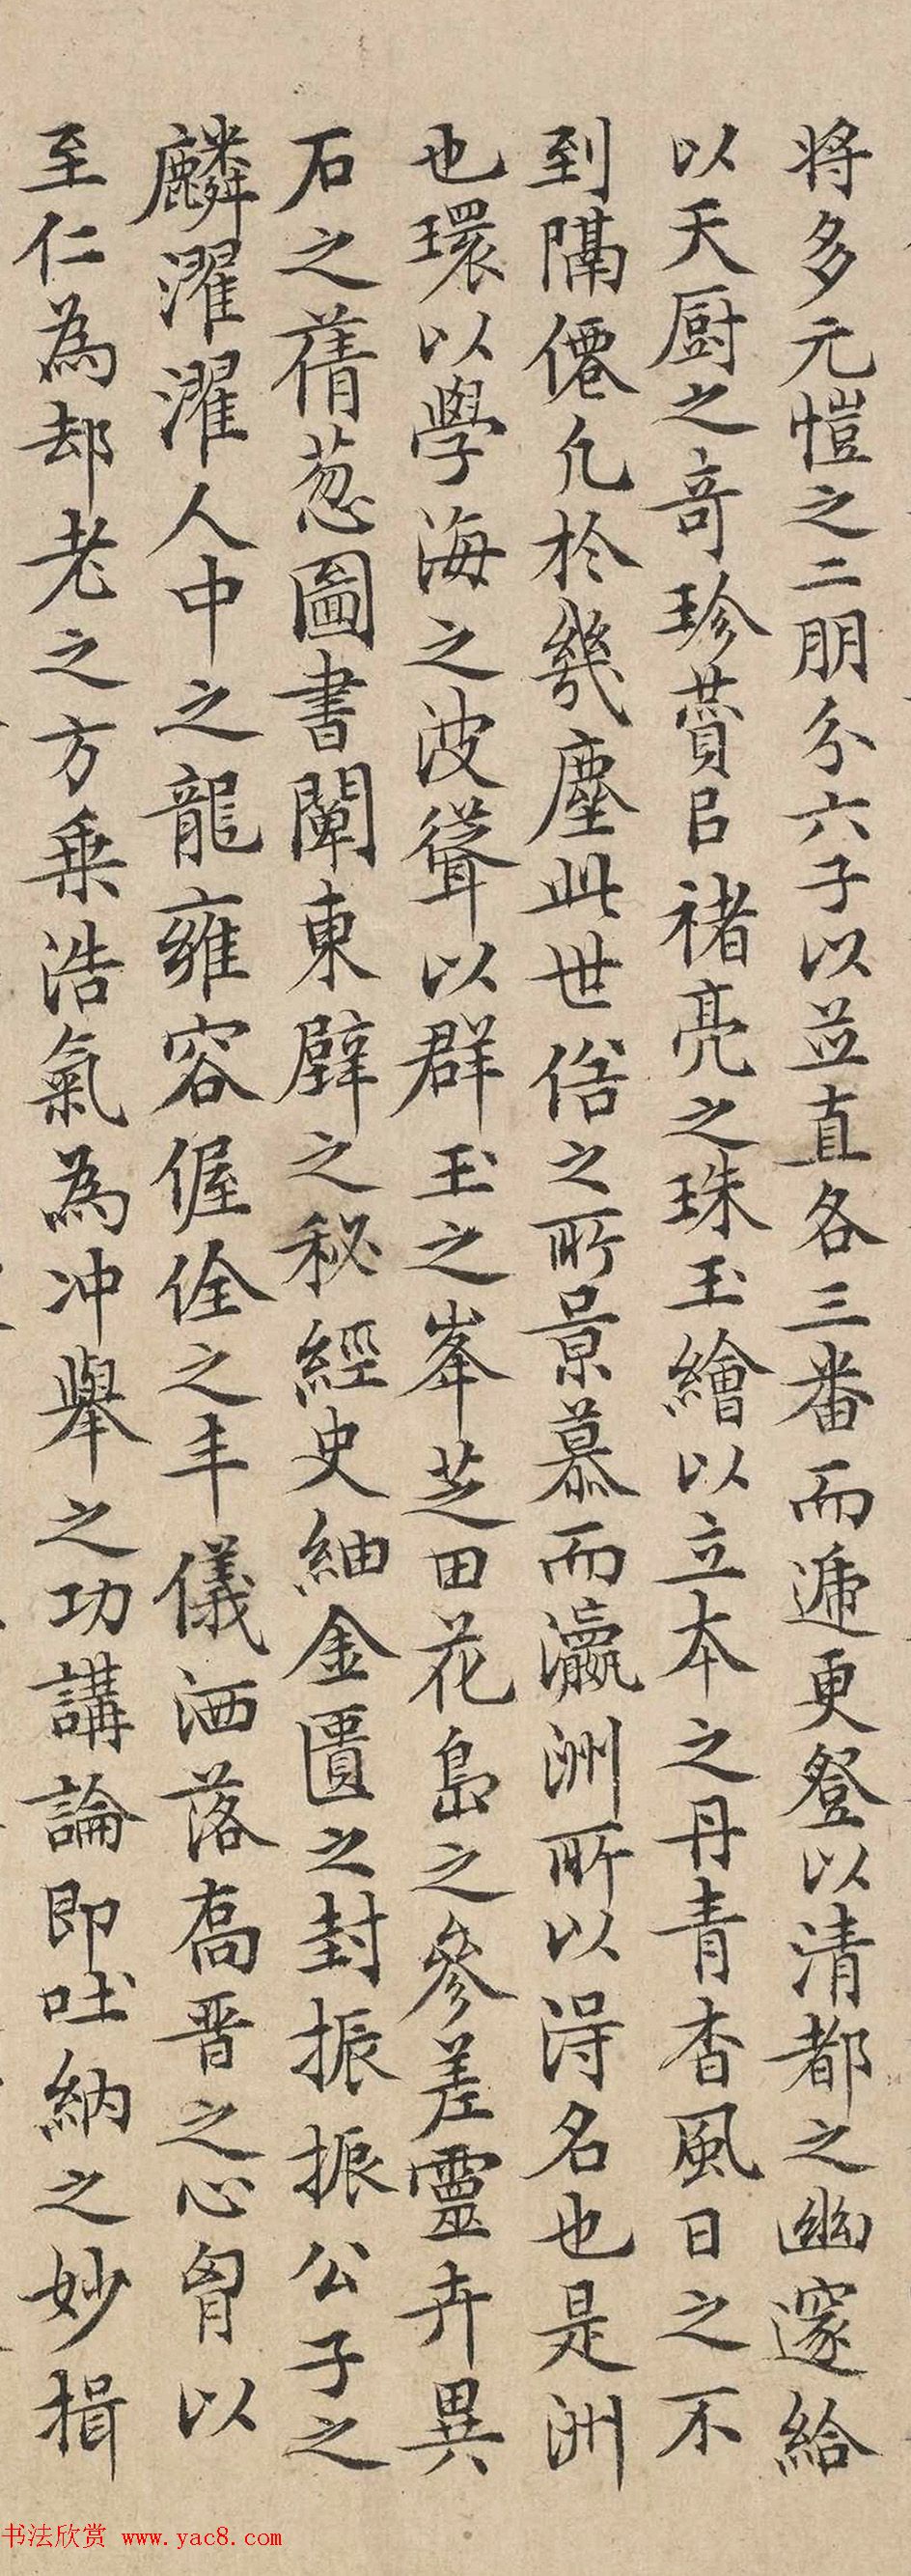 将多元愷之二朋分六子以並直各三番而遞更登以清都之幽邃給
以天厨之竒珍蕡㠯褚亮之珠玉繪以立本之丹青杳風日之不
到隔僊凢於幾塵此世俗之所景慕而瀛洲所以淂名也是洲
也環以學海之波聳以群玉之峯芝田花島之參差靈卉異
石之蒨葱圖書闡東壁之秘經史紬金匱之封振振公子之
麟濯濯人中之龍雍容偓佺之丰儀洒落喬晋之心胷以
至仁為却老之方乗浩氣為冲舉之功講論即吐納之妙揖
书法欣赏 www.yac8.com